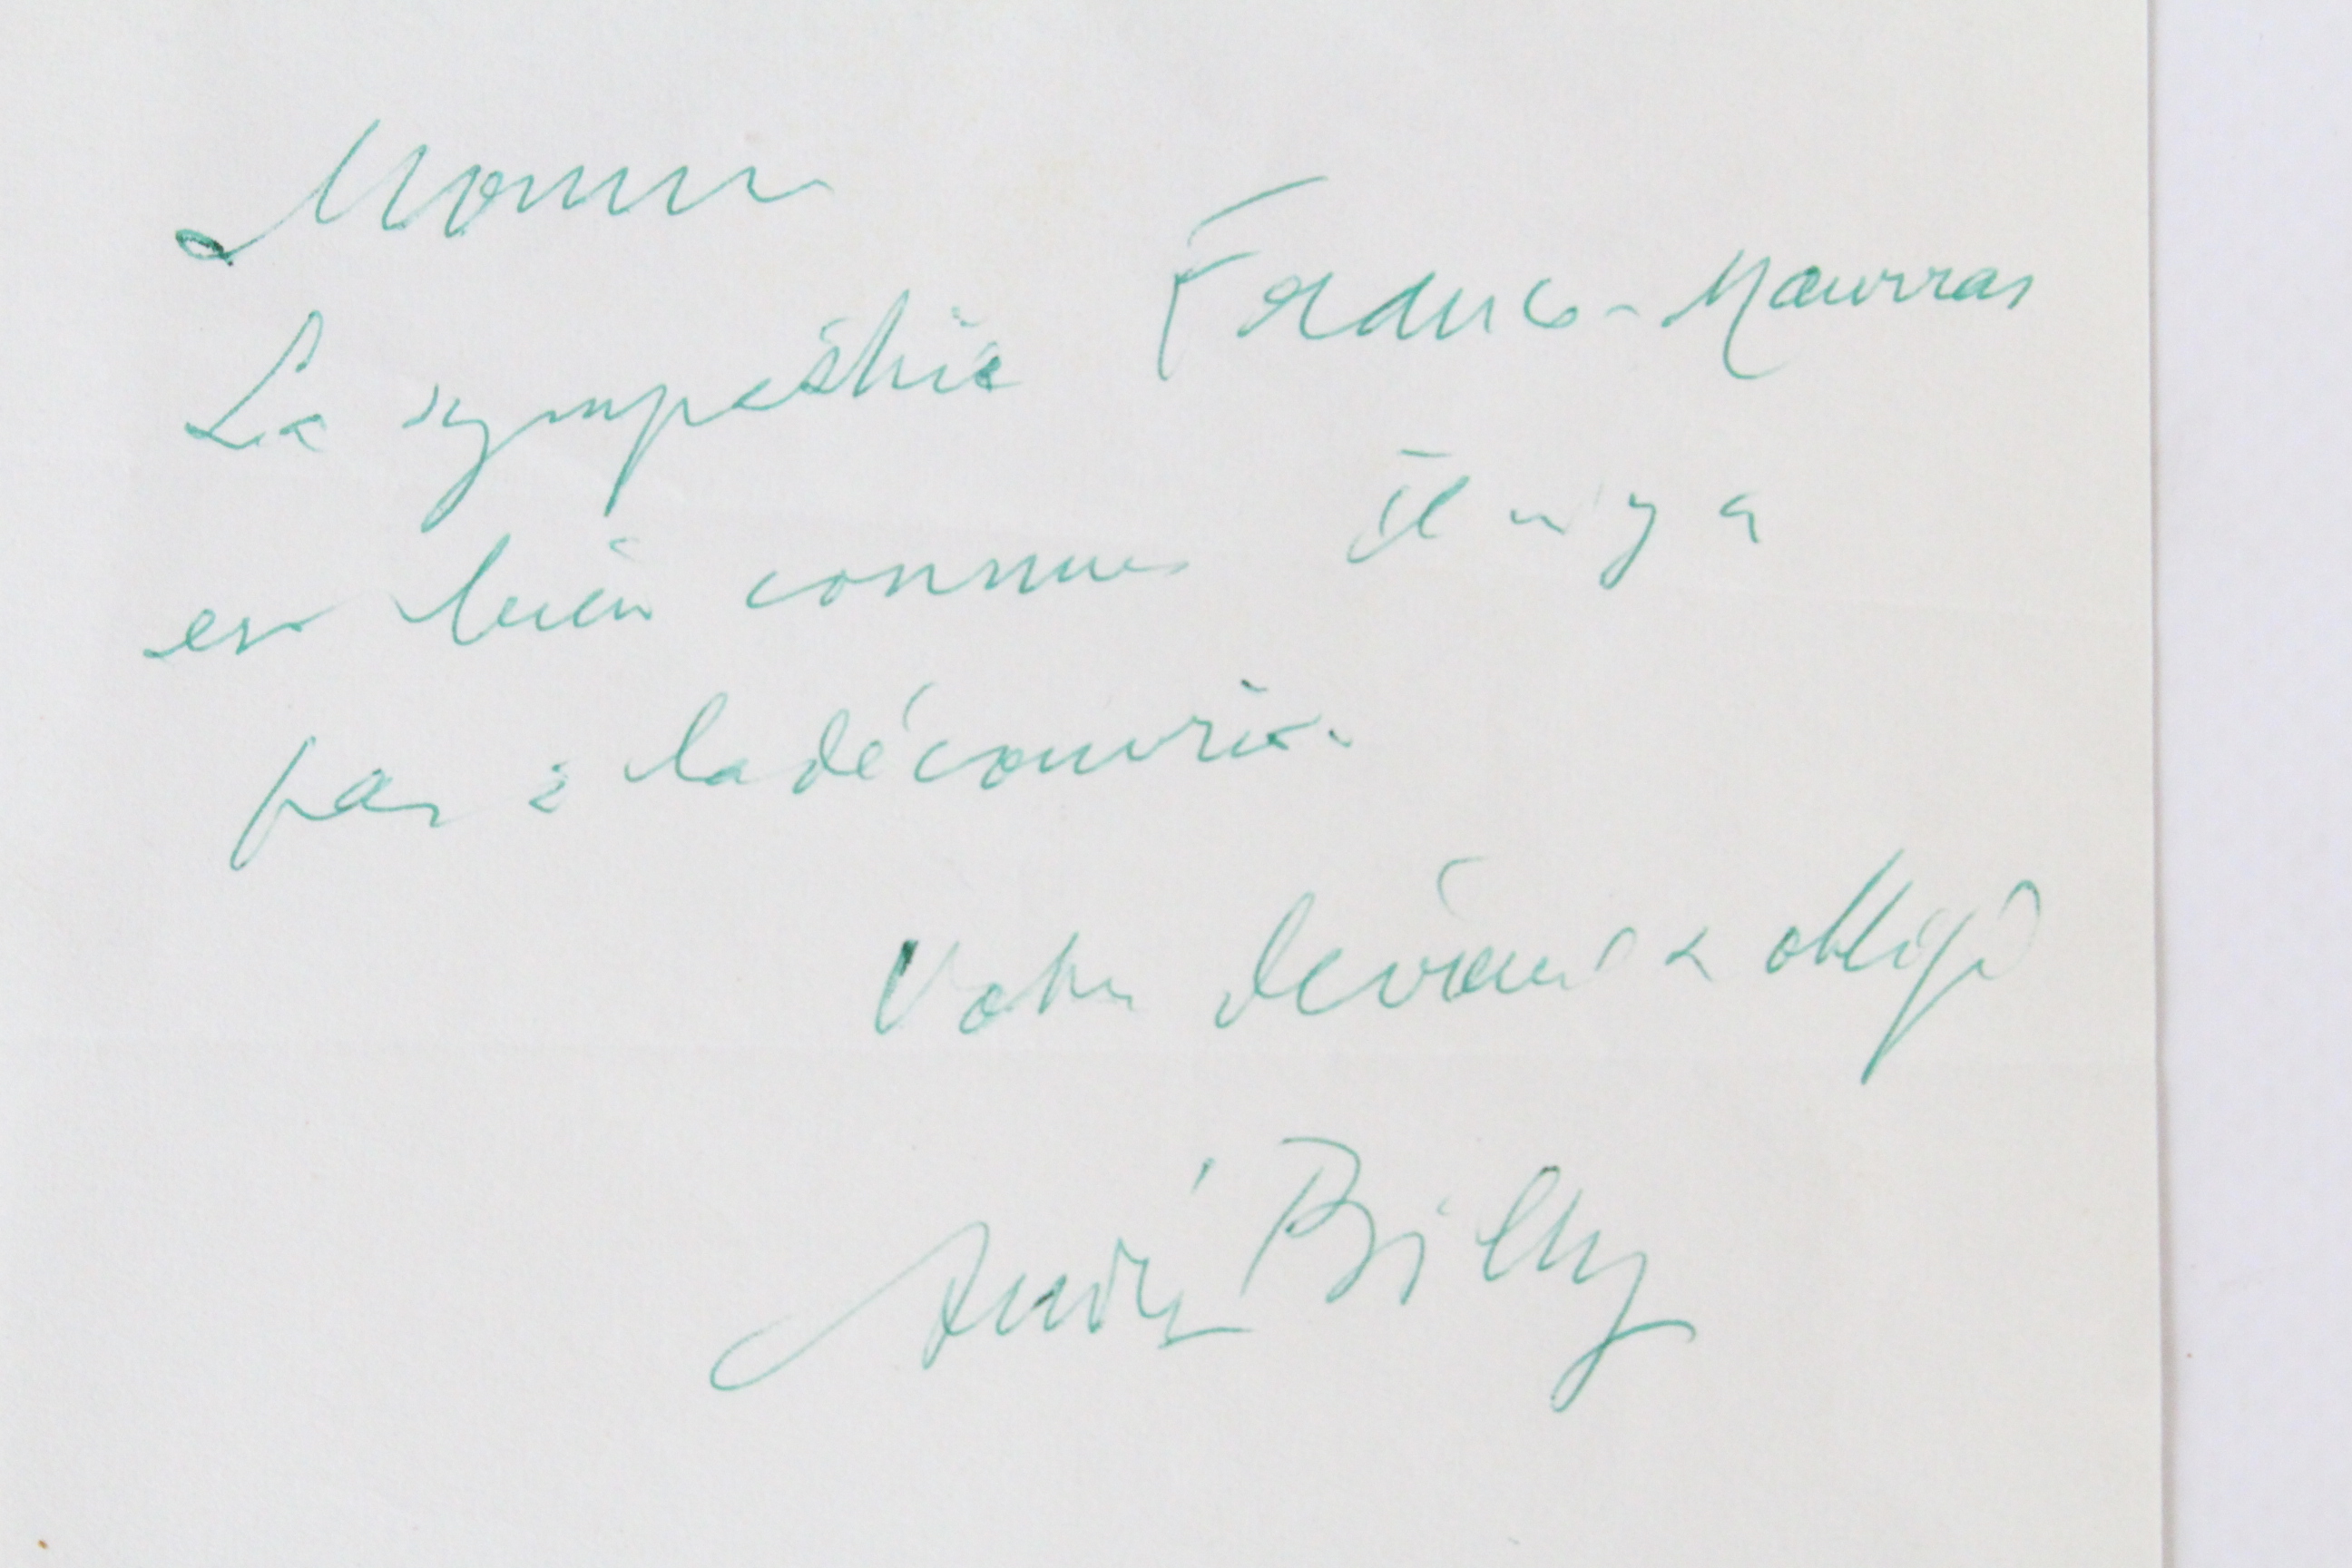 Monsieur
La sympathie Franco-Maurras
est bien connue. Il n'y a
pas à la découvrir.
Votre dévoué & obligé
André Billy